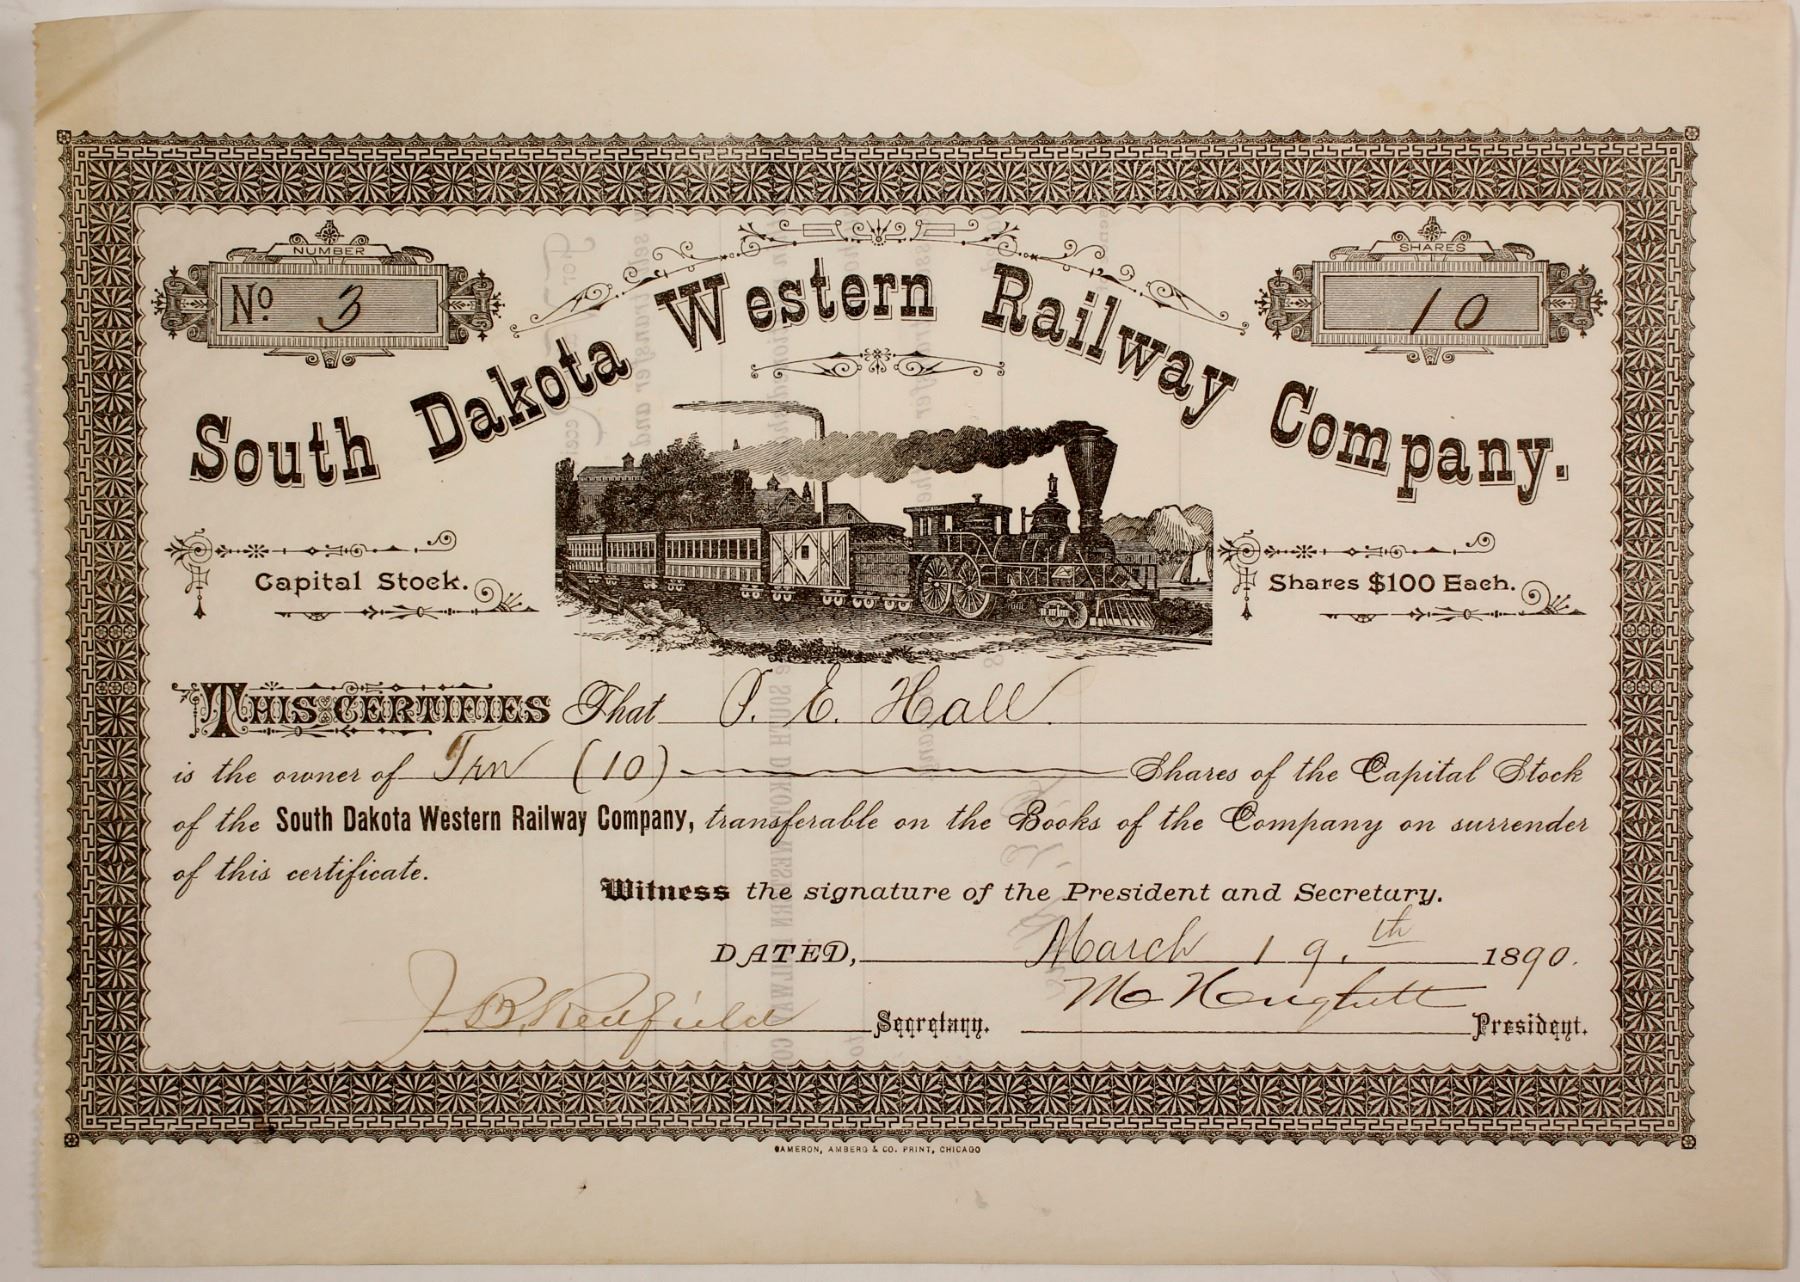 NUMBER
No 3
SHARES
10
South Dakota Western Railway Company.
Capital Stock.
Shares $100 Each.
THIS CERTIFIES That E. Hall
is the owner of Ten (10) Shares of the Capital Stock
of the South Dakota Western Railway Company, transferable on the Books of the Company on surrender
of this certificate.
Witness the signature of the President and Secretary.
DATED, March 19.th 1890.
J B Redfield Secretary. M Hughitt President.
CAMERON, AMBERG & CO. PRINT, CHICAGO